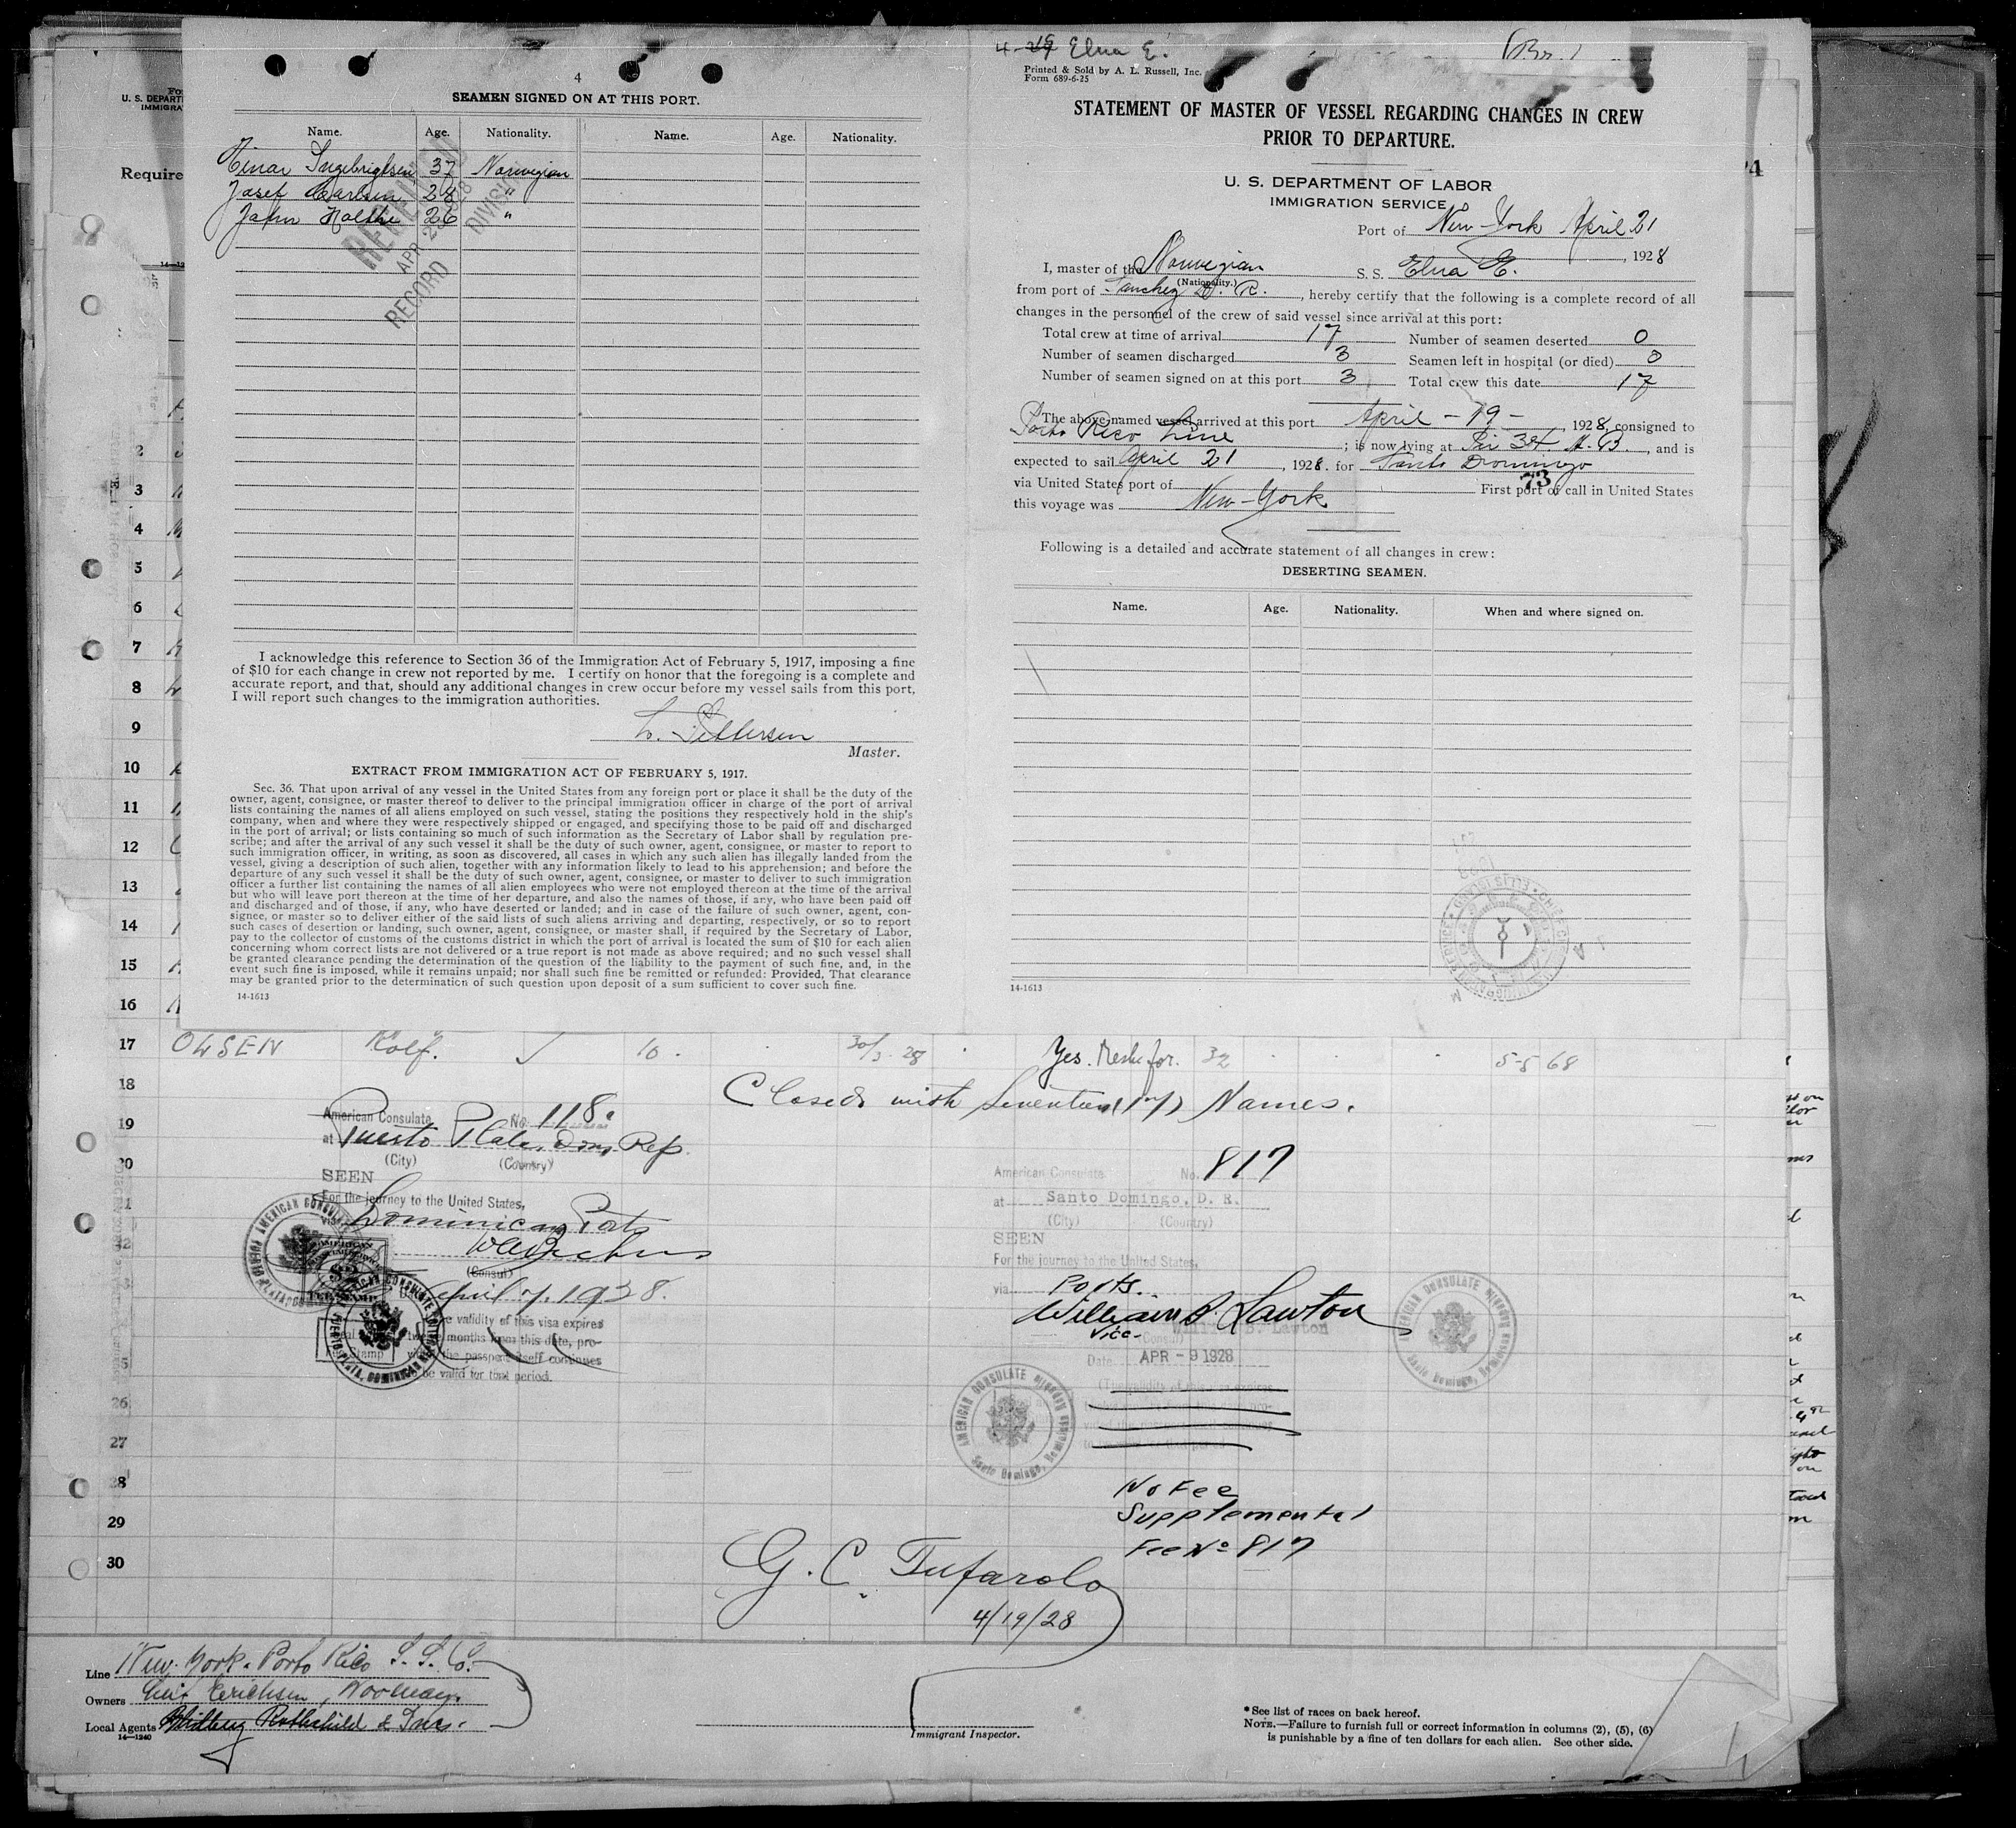 4
SEAMEN SIGNED ON AT THIS PORT.
Name. Age. Nationality. Name. Age. Nationality.
Einar Ingebrigtsen 37 Norwegian
Josef Karlsen 28 "
John Holthe 26 "
RECEIVED
APR 23 1928
RECORD DIVISION
I acknowledge this reference to Section 36 of the Immigration Act of February 5, 1917, imposing a fine
of $10 for each change in crew not reported by me. I certify on honor that the foregoing is a complete and
accurate report, and that, should any additional changes in crew occur before my vessel sails from this port,
I will report such changes to the immigration authorities.
Pettersen
Master.
EXTRACT FROM IMMIGRATION ACT OF FEBRUARY 5, 1917.
Sec. 36. That upon arrival of any vessel in the United States from any foreign port or place it shall be the duty of the
owner, agent, consignee, or master thereof to deliver to the principal immigration officer in charge of the port of arrival
lists containing the names of all aliens employed on such vessel, stating the positions they respectively hold in the ship's
company, when and where they were respectively shipped or engaged, and specifying those to be paid off and discharged
in the port of arrival; or lists containing so much of such information as the Secretary of Labor shall by regulation pre-
scribe; and after the arrival of any such vessel it shall be the duty of such owner, agent, consignee, or master to report to
such immigration officer, in writing, as soon as discovered, all cases in which any such alien has illegally landed from the
vessel, giving a description of such alien, together with any information likely to lead to his apprehension; and before the
departure of any such vessel it shall be the duty of such owner, agent, consignee, or master to deliver to such immigration
officer a further list containing the names of all alien employees who were not employed thereon at the time of the arrival
but who will leave port thereon at the time of her departure, and also the names of those, if any, who have been paid off
and discharged and of those, if any, who have deserted or landed; and in case of the failure of such owner, agent, con-
signee, or master so to deliver either of the said lists of such aliens arriving and departing, respectively, or so to report
such cases of desertion or landing, such owner, agent, consignee, or master shall, if required by the Secretary of Labor,
pay to the collector of customs of the customs district in which the port of arrival is located the sum of $10 for each alien
concerning whom correct lists are not delivered or a true report is not made as above required; and no such vessel shall
be granted clearance pending the determination of the question of the liability to the payment of such fine, and, in the
event such fine is imposed, while it remains unpaid; nor shall such fine be remitted or refunded: Provided, That clearance
may be granted prior to the determination of such question upon deposit of a sum sufficient to cover such fine.
14-1613
Elna E.
Printed & Sold by A. L. Russell, Inc.
Form 689-6-25
STATEMENT OF MASTER OF VESSEL REGARDING CHANGES IN CREW
PRIOR TO DEPARTURE.
U. S. DEPARTMENT OF LABOR
IMMIGRATION SERVICE
Port of New York April 21
, 1928
I, master of the Norwegian S. S. Elna E.
(Nationality.)
from port of Sanchez D. R. , hereby certify that the following is a complete record of all
changes in the personnel of the crew of said vessel since arrival at this port:
Total crew at time of arrival 17 Number of seamen deserted 0
Number of seamen discharged 3 Seamen left in hospital (or died) 0
Number of seamen signed on at this port 3 Total crew this date 17
The above-named vessel arrived at this port April - 19 - , 1928, consigned to
Porto Rico Line ; is now lying at Pir 34. , and is
expected to sail April 21 , 1928. for Santo Domingo
73
via United States port of First port of call in United States
this voyage was New-York
Following is a detailed and accurate statement of all changes in crew:
DESERTING SEAMEN.
Name. Age. Nationality. When and where signed on.
14-1613
U. S. DEPART
IMMIGRA
Require
2
3
4
5
6
7
8
9
10
11
12
13
14
15
16
17 OLSEN Rolf. 10. 30/3-28 Yes. 32 5-5 68
18 Closed with Seventeen (17) Names.
American Consulate No. 118.
19
at Puerto Plata, Dom, Rep.
(City) (Country)
20
SEEN
For the journey to the United States,
via Dominican Ports
(Consul)
April 7, 1928.
validity of this visa expires
months from this date, pro-
the passport itself continues
be valid for that period.
American Consulate No. 817
at Santo Domingo, D. R.
(City) (Country)
SEEN
For the journey to the United States,
via Ports.
William B. Lawton
William B. Lawton
Vice- (Consul)
Date APR - 9 1928
AMERICAN CONSULATE
Santo Domingo, Dominican Republic
26
27
28
29
30
No Fee
Supplemental
Fee No 817
G. C. Tufarolo
4/19/28
Line New York-Porto Rico S. S. Co.
Owners Erichsen, Norway.
Local Agents
14-1240
Immigrant Inspector.
* See list of races on back hereof.
NOTE.—Failure to furnish full or correct information in columns (2), (5), (6)
is punishable by a fine of ten dollars for each alien. See other side.